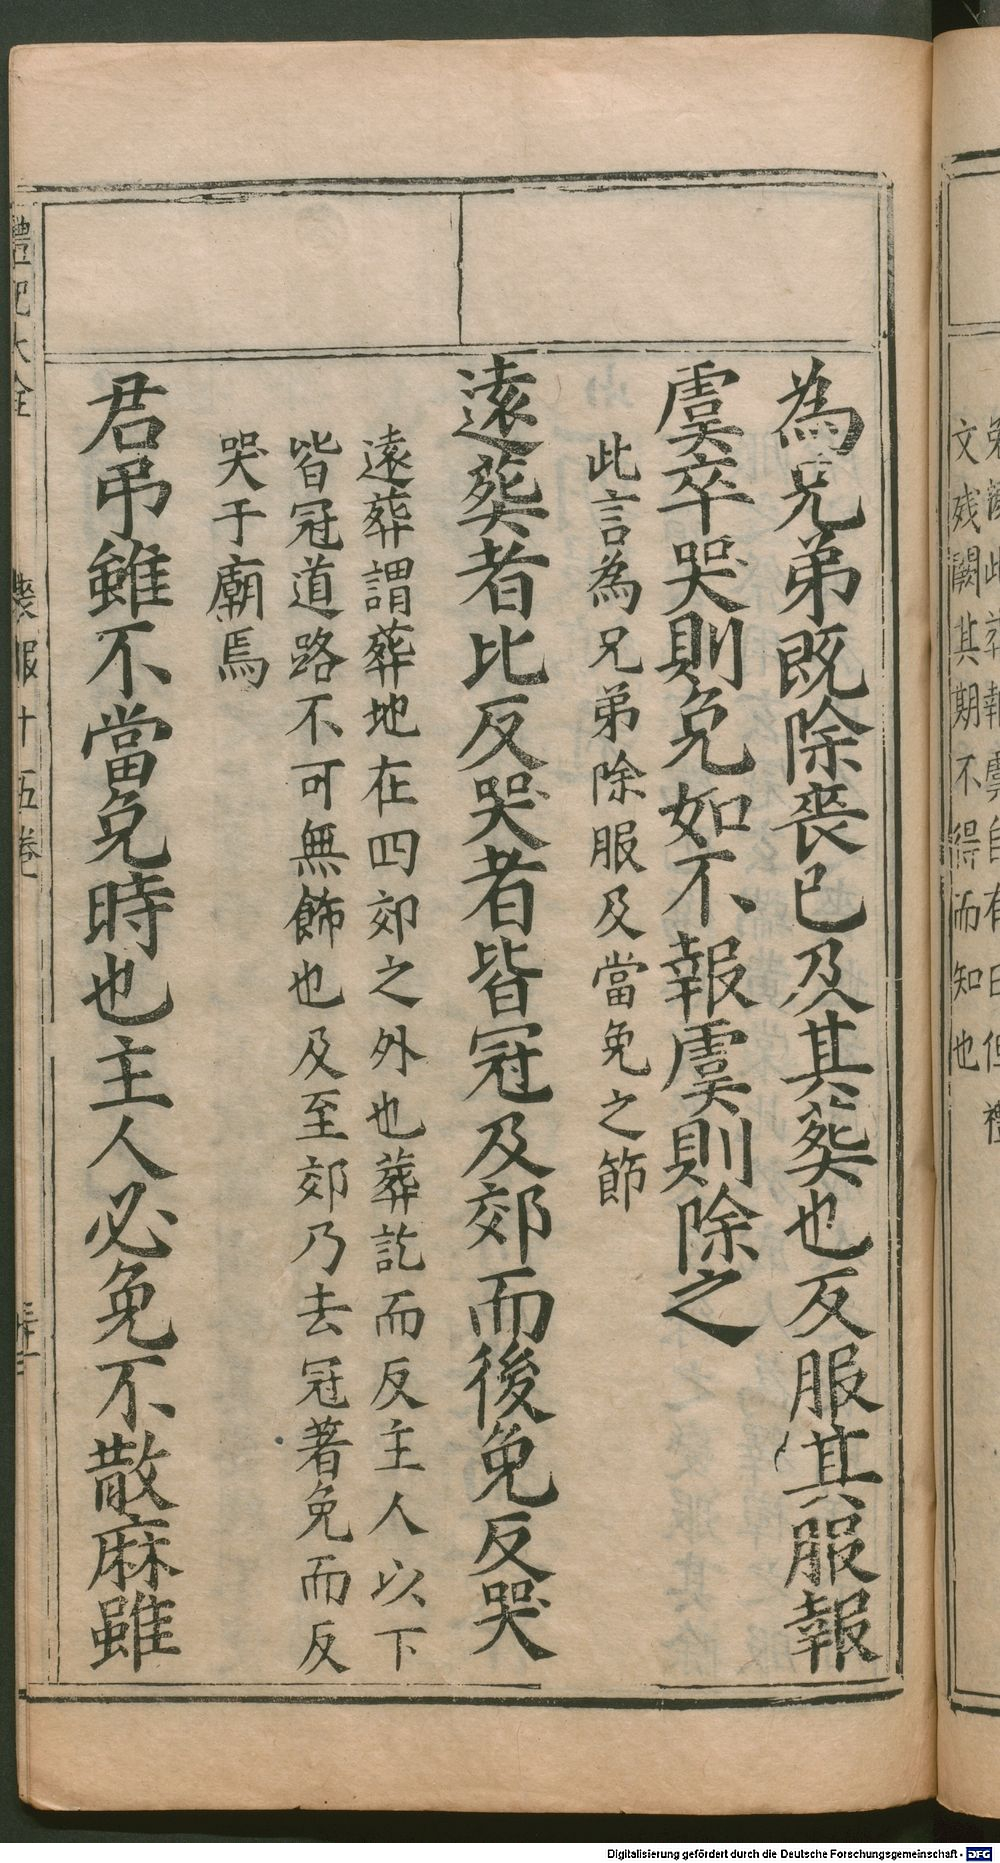 文残闕其期不得而知也
為兄弟既除喪已及其葬也反服其服報
虞卒哭則免如不報虞則除之
此言為兄弟除服及當免之節
遠葬者比反哭者皆冠及郊而後免反哭
遠葬謂葬地在四郊之外也葬訖而反主人以下
皆冠道路不可無飾也及至郊乃去冠著免而反
哭于廟焉
君弔雖不當免時也主人必免不散麻雖
禮記大全
喪服十五卷
Digitalisierung gefördert durch die Deutsche Forschungsgemeinschaft - DFG